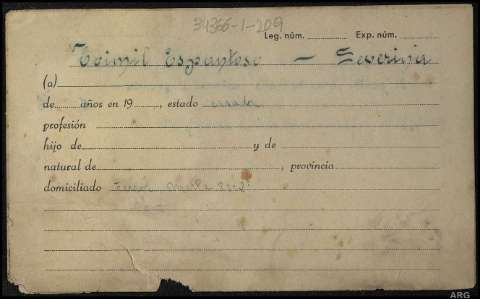 34366-1-209
Leg. núm. Exp. núm.
Teimil Espantoso — Severina
(a)
de años en 19, estado casada
profesión
hijo de y de
natural de, provincia
domiciliado
ARG